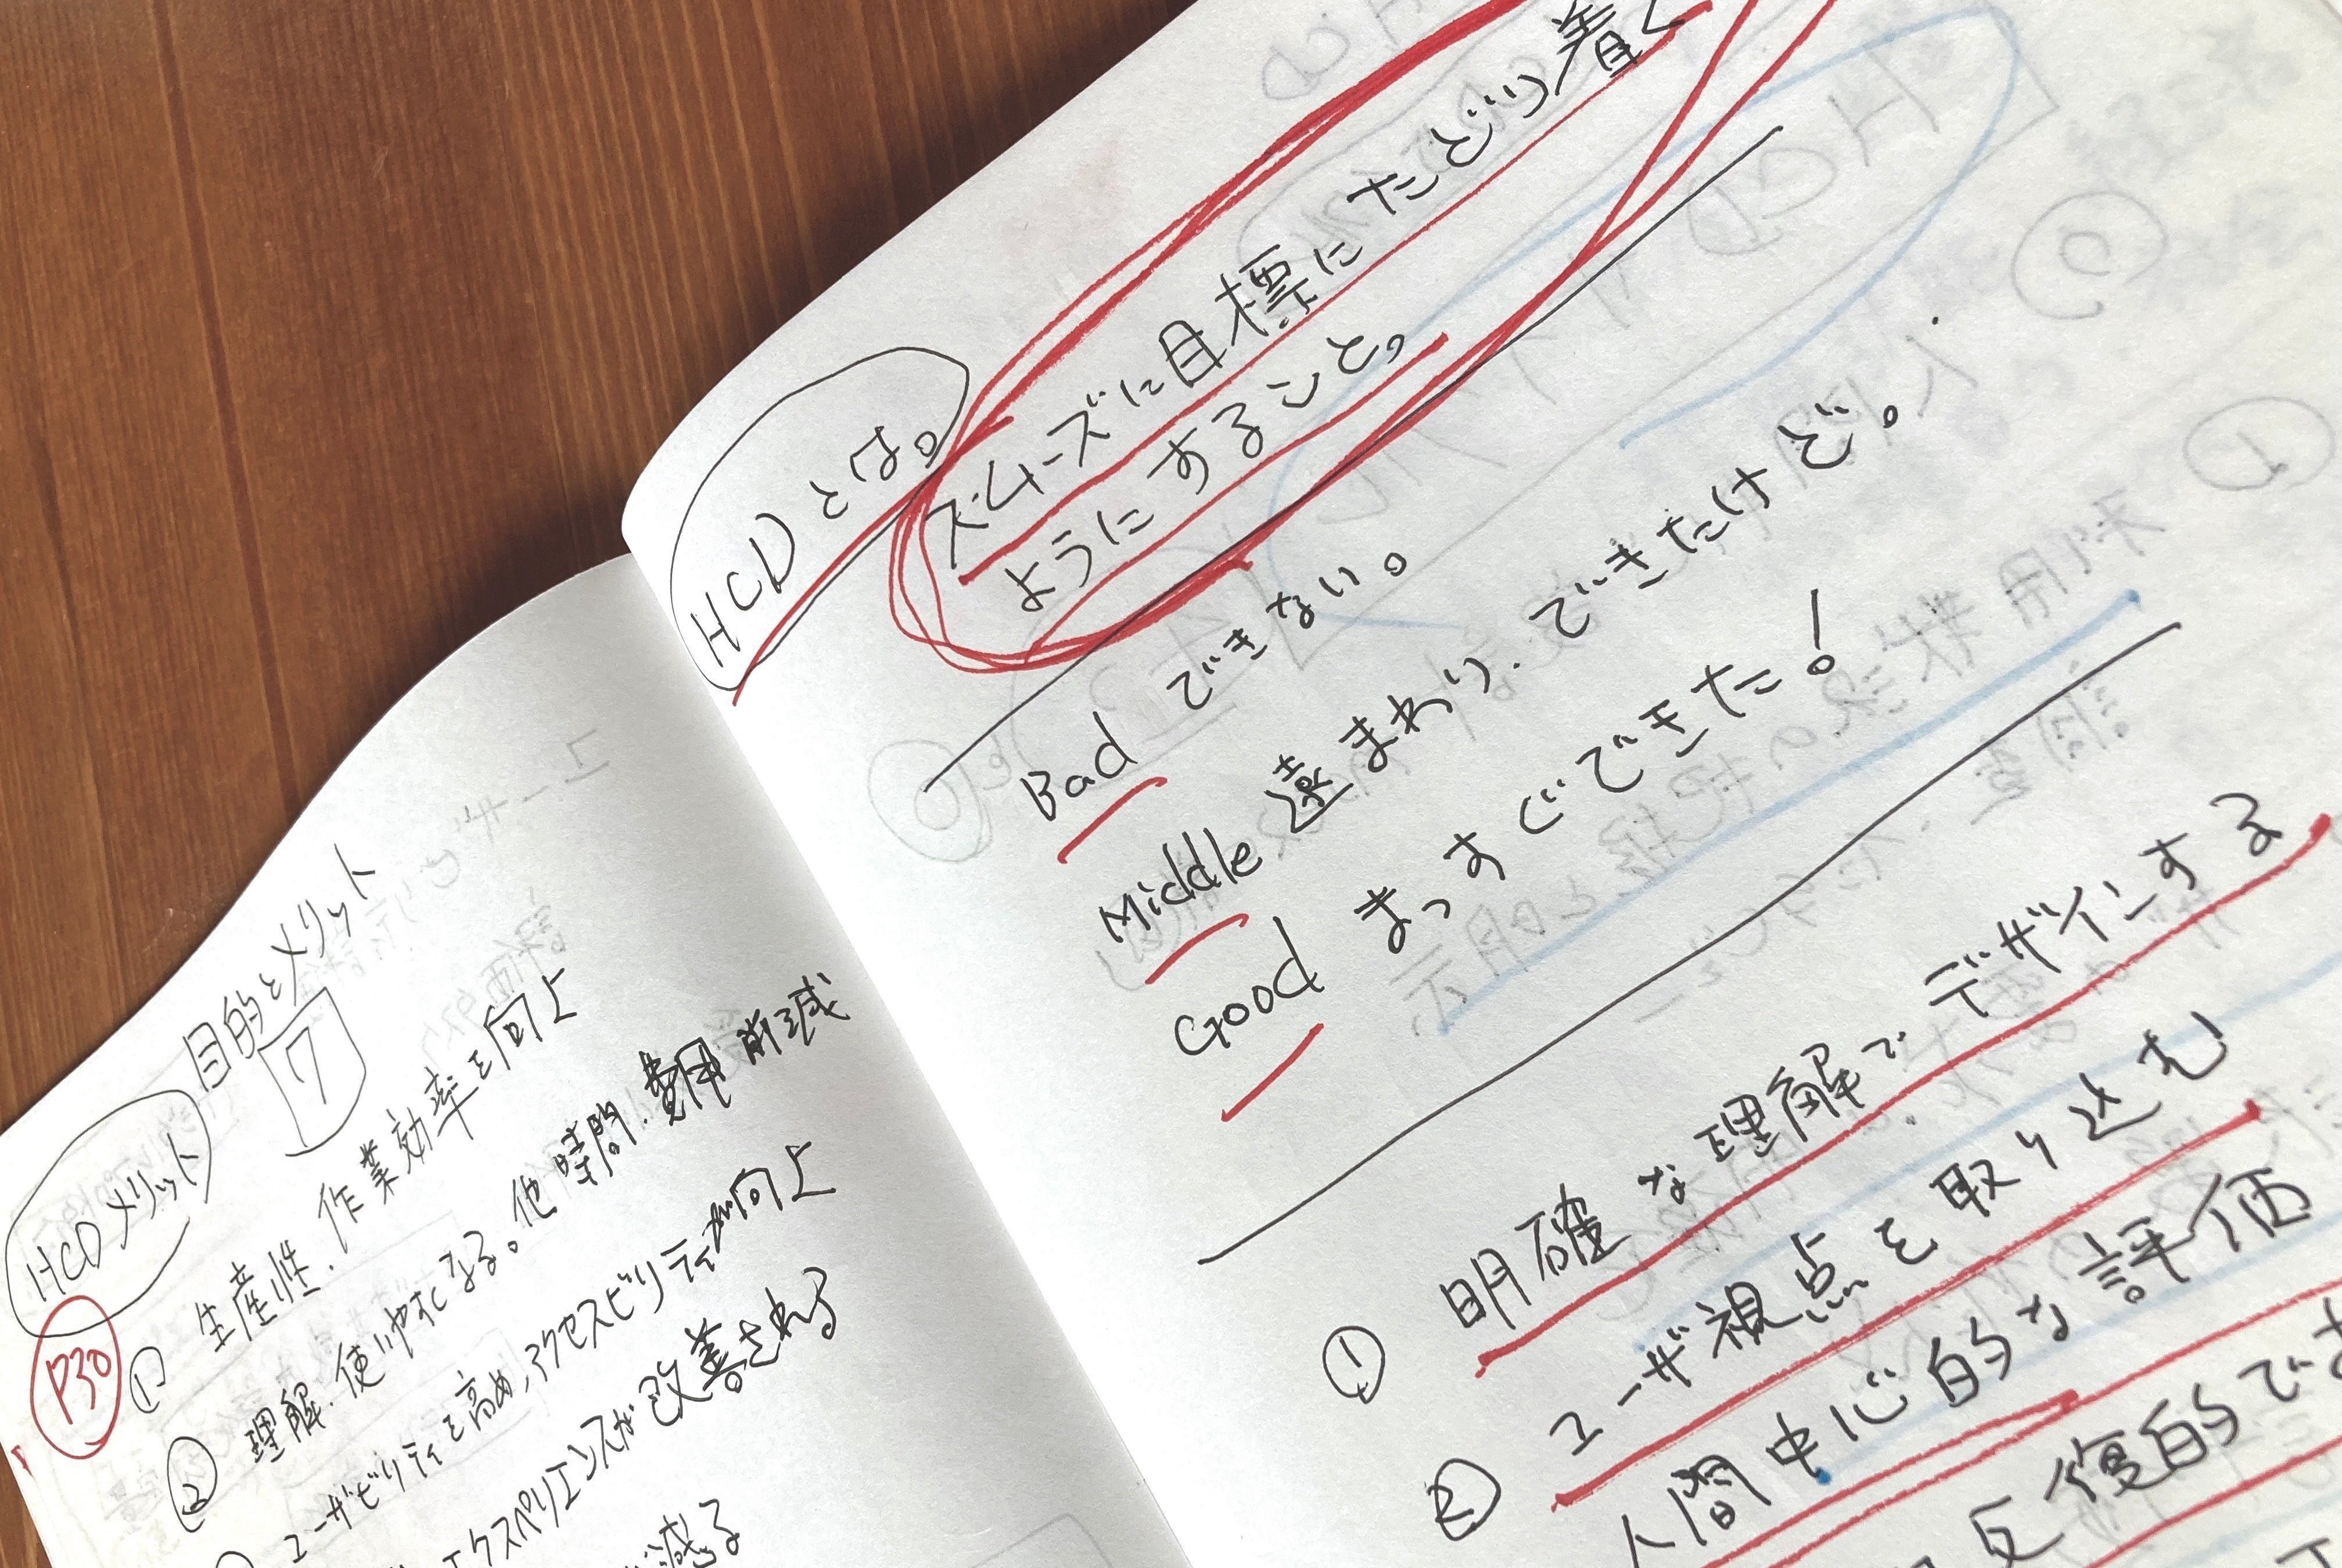 HCDメリット
目的とメリット
7
P30
① 生産性、作業効率を向上
② 理解、使いやすくなる。他 時間、費用 削減
ユーザビリティを高め、アクセスビリティが向上
エクスペリエンスが改善される
減る
HCDとは。
スムーズに目標にたどり着く
ようにすること。
Bad できない。
Middle 遠まわり、できたけど。
Good まっすぐできた!
① 明確な理解でデザインする
② ユーザ視点を取り込む
人間中心的な評価
反復的で